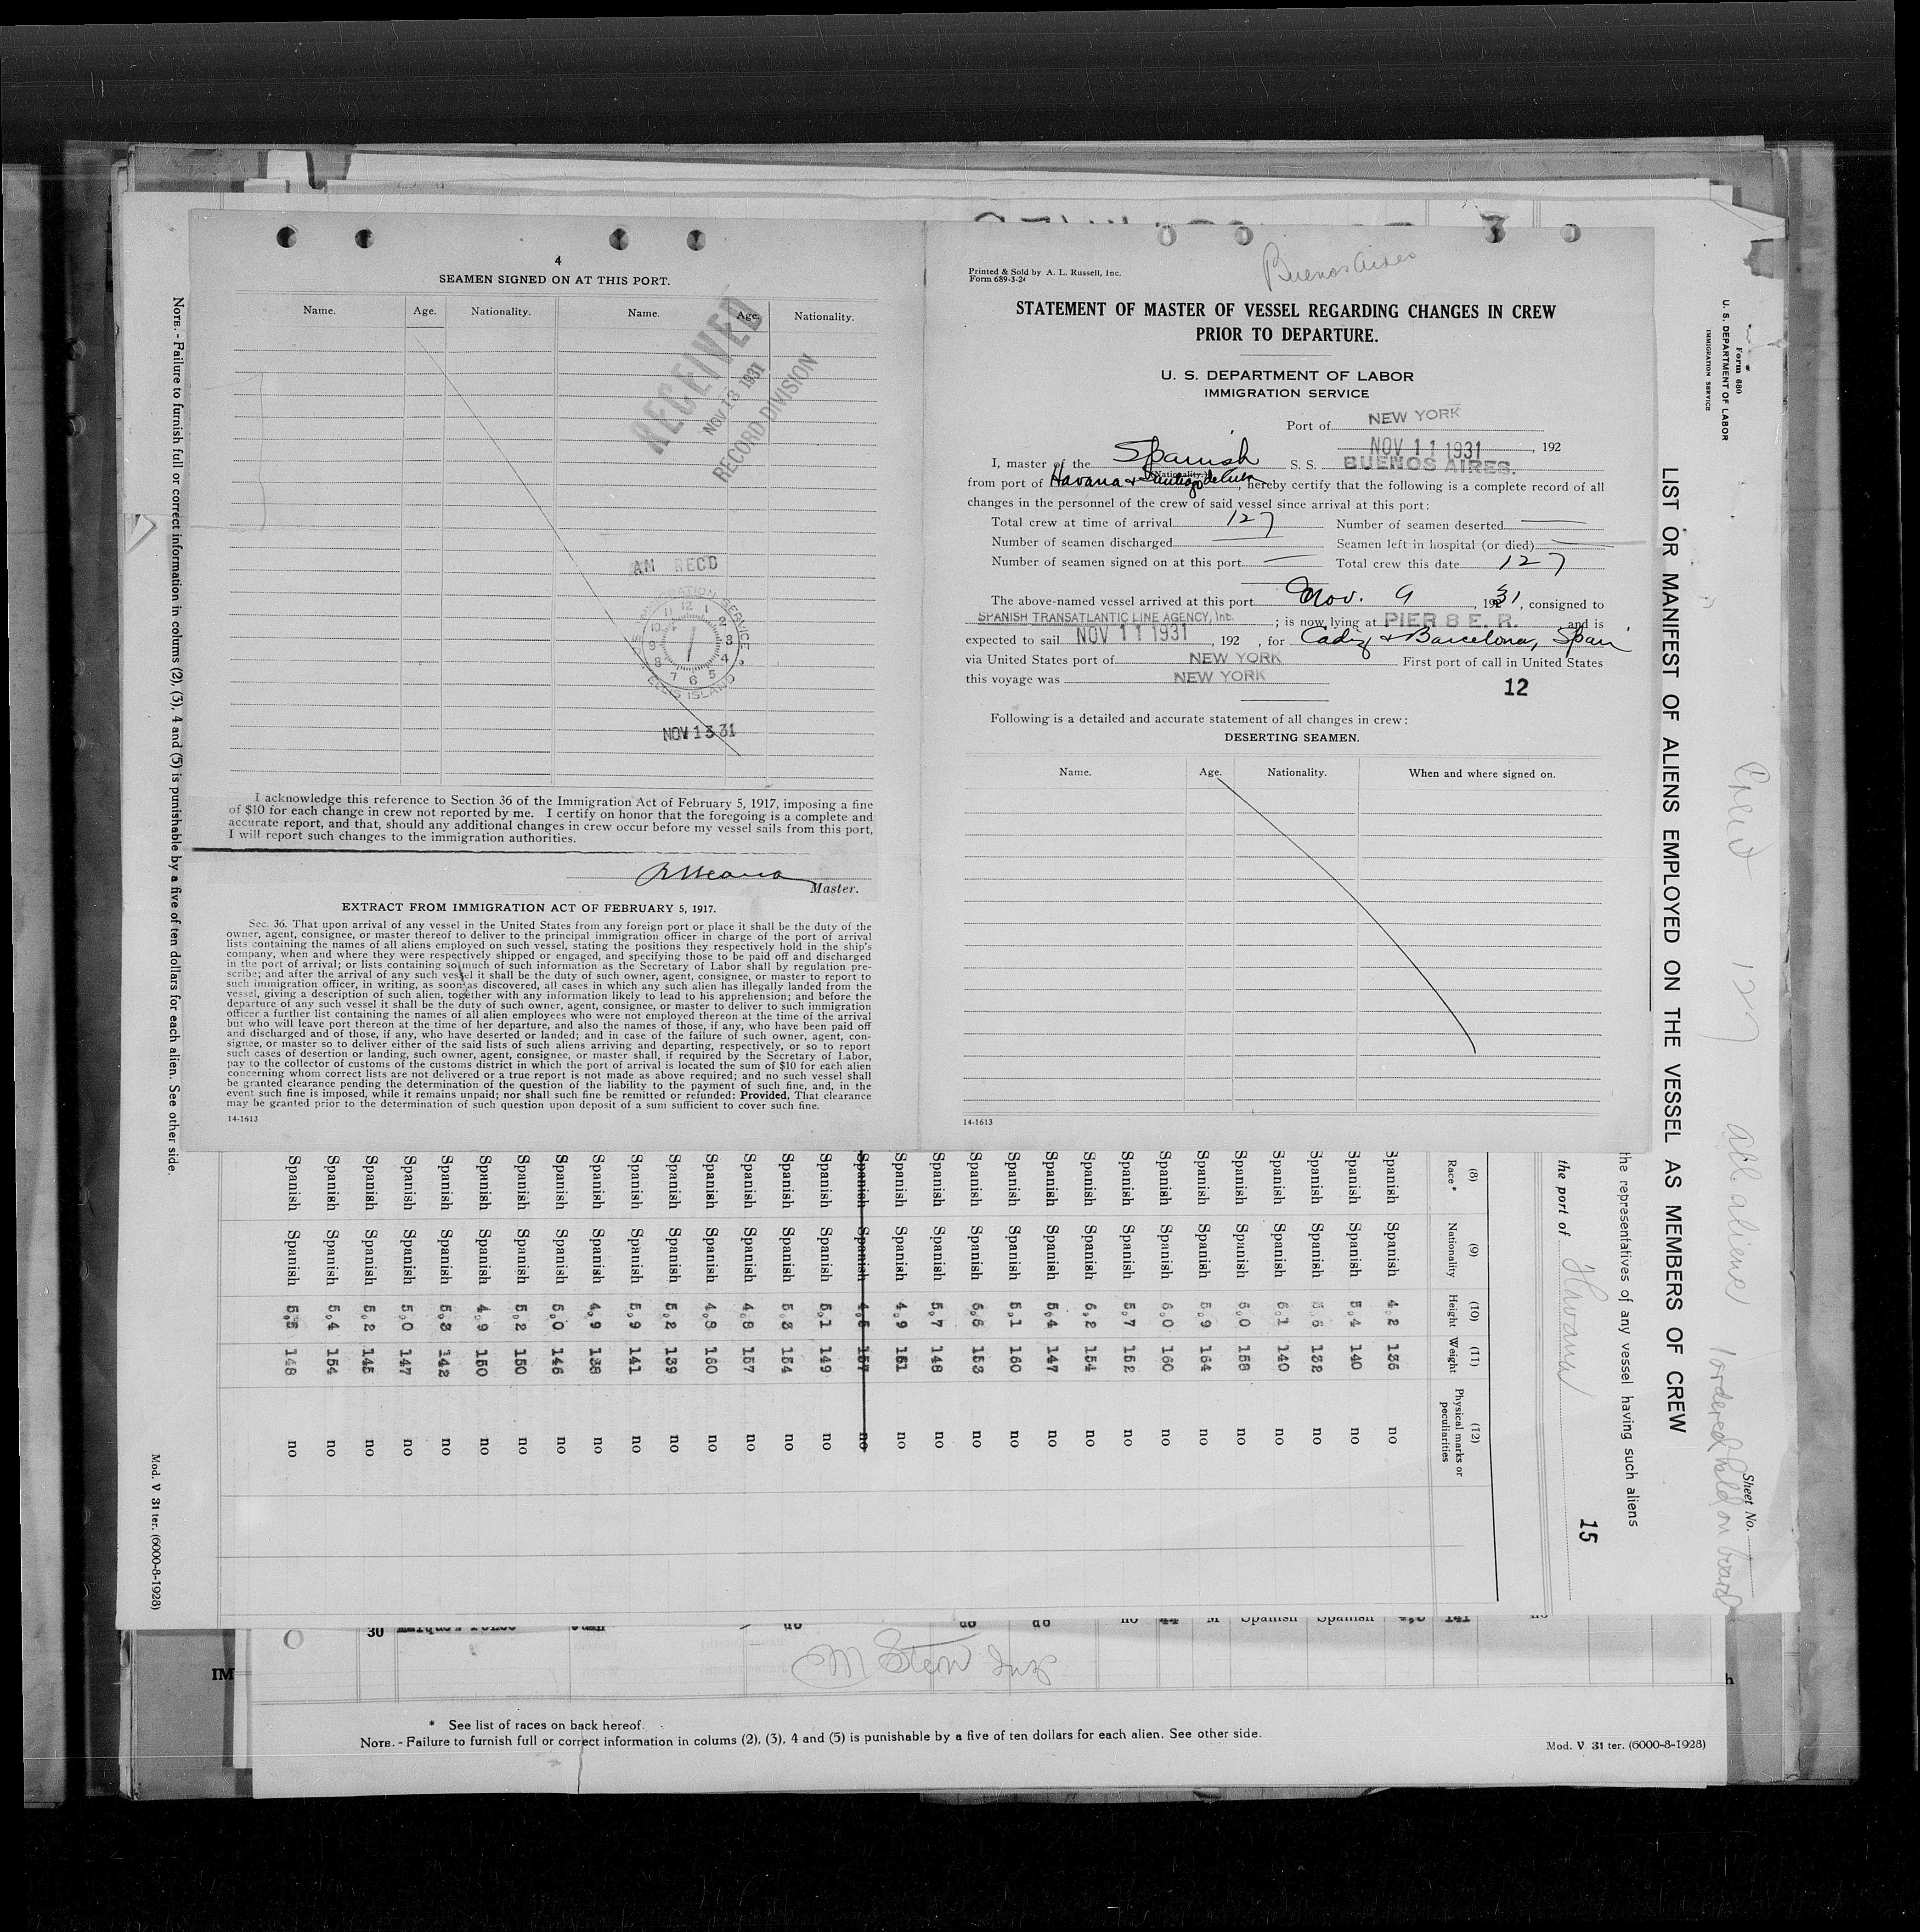 4
SEAMEN SIGNED ON AT THIS PORT.
Name. Age. Nationality. Name. Age. Nationality.
RECEIVED
NOV 13 1931
RECORD DIVISION
AM RECD
IMMIGRATION SERVICE
ELLIS ISLAND
NOV 13 31
I acknowledge this reference to Section 36 of the Immigration Act of February 5, 1917, imposing a fine
of $10 for each change in crew not reported by me. I certify on honor that the foregoing is a complete and
accurate report, and that, should any additional changes in crew occur before my vessel sails from this port,
I will report such changes to the immigration authorities.
Master.
EXTRACT FROM IMMIGRATION ACT OF FEBRUARY 5, 1917.
Sec. 36. That upon arrival of any vessel in the United States from any foreign port or place it shall be the duty of the
owner, agent, consignee, or master thereof to deliver to the principal immigration officer in charge of the port of arrival
lists containing the names of all aliens employed on such vessel, stating the positions they respectively hold in the ship's
company, when and where they were respectively shipped or engaged, and specifying those to be paid off and discharged
in the port of arrival; or lists containing so much of such information as the Secretary of Labor shall by regulation pre-
scribe; and after the arrival of any such vessel it shall be the duty of such owner, agent, consignee, or master to report to
such immigration officer, in writing, as soon as discovered, all cases in which any such alien has illegally landed from the
vessel, giving a description of such alien, together with any information likely to lead to his apprehension; and before the
departure of any such vessel it shall be the duty of such owner, agent, consignee, or master to deliver to such immigration
officer a further list containing the names of all alien employees who were not employed thereon at the time of the arrival
but who will leave port thereon at the time of her departure, and also the names of those, if any, who have been paid off
and discharged and of those, if any, who have deserted or landed; and in case of the failure of such owner, agent, con-
signee, or master so to deliver either of the said lists of such aliens arriving and departing, respectively, or so to report
such cases of desertion or landing, such owner, agent, consignee, or master shall, if required by the Secretary of Labor,
pay to the collector of customs of the customs district in which the port of arrival is located the sum of $10 for each alien
concerning whom correct lists are not delivered or a true report is not made as above required; and no such vessel shall
be granted clearance pending the determination of the question of the liability to the payment of such fine, and, in the
event such fine is imposed, while it remains unpaid; nor shall such fine be remitted or refunded: Provided, That clearance
may be granted prior to the determination of such question upon deposit of a sum sufficient to cover such fine.
14-1613
Buenos Aires
Printed & Sold by A. L. Russell, Inc.
Form 689-3-24
STATEMENT OF MASTER OF VESSEL REGARDING CHANGES IN CREW
PRIOR TO DEPARTURE.
U. S. DEPARTMENT OF LABOR
IMMIGRATION SERVICE
Port of NEW YORK
NOV 11 1931, 192
I, master of the Spanish S. S. BUENOS AIRES.
(Nationality.)
from port of Havana & Santiago de Cuba, hereby certify that the following is a complete record of all
changes in the personnel of the crew of said vessel since arrival at this port:
Total crew at time of arrival 127 Number of seamen deserted
Number of seamen discharged Seamen left in hospital (or died)
Number of seamen signed on at this port — Total crew this date 127
The above-named vessel arrived at this port Nov. 9, 1931, consigned to
SPANISH TRANSATLANTIC LINE AGENCY, Inc. ; is now lying at PIER 8 E. R. and is
expected to sail NOV 11 1931, 192 , for Cadiz & Barcelona, Spain
via United States port of NEW YORK First port of call in United States
this voyage was NEW YORK
12
Following is a detailed and accurate statement of all changes in crew:
DESERTING SEAMEN.
Name. Age. Nationality. When and where signed on.
14-1613
Form 680
U. S. DEPARTMENT OF LABOR
IMMIGRATION SERVICE
LIST OR MANIFEST OF ALIENS EMPLOYED ON THE VESSEL AS MEMBERS OF CREW
Sheet No.
127 all aliens
1 ordered held on board
the representatives of any vessel having such aliens
the port of Havana
15
(8) Race* (9) Nationality (10) Height (11) Weight (12) Physical marks or peculiarities
Spanish Spanish 4,2 135 no
Spanish Spanish 5,4 140 no
Spanish Spanish 5,6 132 no
Spanish Spanish 6,1 140 no
Spanish Spanish 6,0 158 no
Spanish Spanish 5,9 164 no
Spanish Spanish 6,0 160 no
Spanish Spanish 5,7 152 no
Spanish Spanish 6,2 154 no
Spanish Spanish 5,4 147 no
Spanish Spanish 5,1 160 no
Spanish Spanish 6,6 153 no
Spanish Spanish 5,7 148 no
Spanish Spanish 4,9 151 no
Spanish Spanish 4,5 157 no
Spanish Spanish 5,1 149 no
Spanish Spanish 5,3 154 no
Spanish Spanish 4,8 157 no
Spanish Spanish 4,8 160 no
Spanish Spanish 5,2 139 no
Spanish Spanish 5,9 141 no
Spanish Spanish 4,9 138 no
Spanish Spanish 5,0 146 no
Spanish Spanish 5,2 150 no
Spanish Spanish 4,9 150 no
Spanish Spanish 5,3 142 no
Spanish Spanish 5,0 147 no
Spanish Spanish 5,2 145 no
Spanish Spanish 5,4 154 no
Spanish Spanish 5,5 148 no
NOTE. - Failure to furnish full or correct information in colums (2), (3), 4 and (5) is punishable by a five of ten dollars for each alien. See other side.
Mod. V 31 ter. (6000-8-1928)
30 do do do no 44 M Spanish Spanish 141 no
M Stern Ins
IM
* See list of races on back hereof.
NOTE. - Failure to furnish full or correct information in colums (2), (3), 4 and (5) is punishable by a five of ten dollars for each alien. See other side.
Mod. V 31 ter. (6000-8-1928)